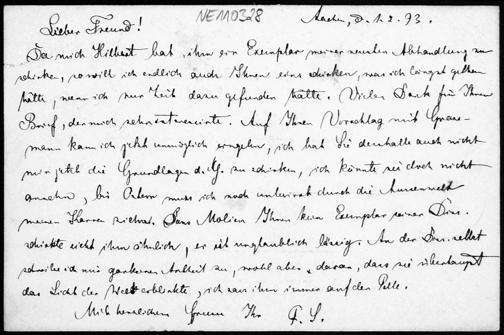 Lieber Freund! NE110328 Aachen, d. 1.2.93.
Da mich Hilbert bat, ihm ein Exemplar meiner neuesten Abhandlung zu
schicken, so will ich endlich auch Ihnen eins schicken, was ich längst gethan
hätte, wenn ich nur Zeit dazu gefunden hätte. Vielen Dank für Ihren
Brief, der mich sehr interessirte. Auf Ihren Vorschlag mit Grass-
mann kann ich jetzt unmöglich eingehen, ich bat Sie deshalb auch nicht
mir jetzt die Grundlagen d. G. zu schicken, ich könnte sie doch nicht
ansehen, bis Ostern muss ich noch unbeirrt durch die Aussenwelt
meinen Karren ziehen. Dass Molien Ihnen kein Exemplar seiner Diss.
schickte sieht ihm ähnlich, er ist unglaublich lässig. An der Diss. selbst
schreibe ich mir gar keinen Antheil zu, wohl aber daran, dass sie überhaupt
das Licht der Welt erblickte, ich sass ihm immer auf der Pelle.
Mit herzlichem Gruss Ihr F. S.